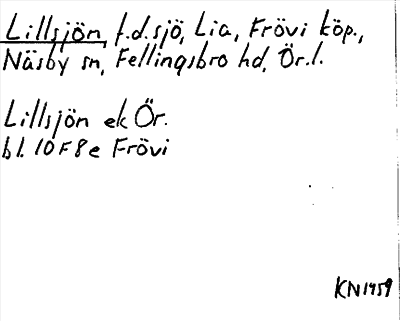 Lillsjön, f.d. sjö, Lia, Frövi köp.,
Näsby sn, Fellingsbro hd, Ör.l.
Lillsjön ek Ör.
bl. 10F8e Frövi
KN1959